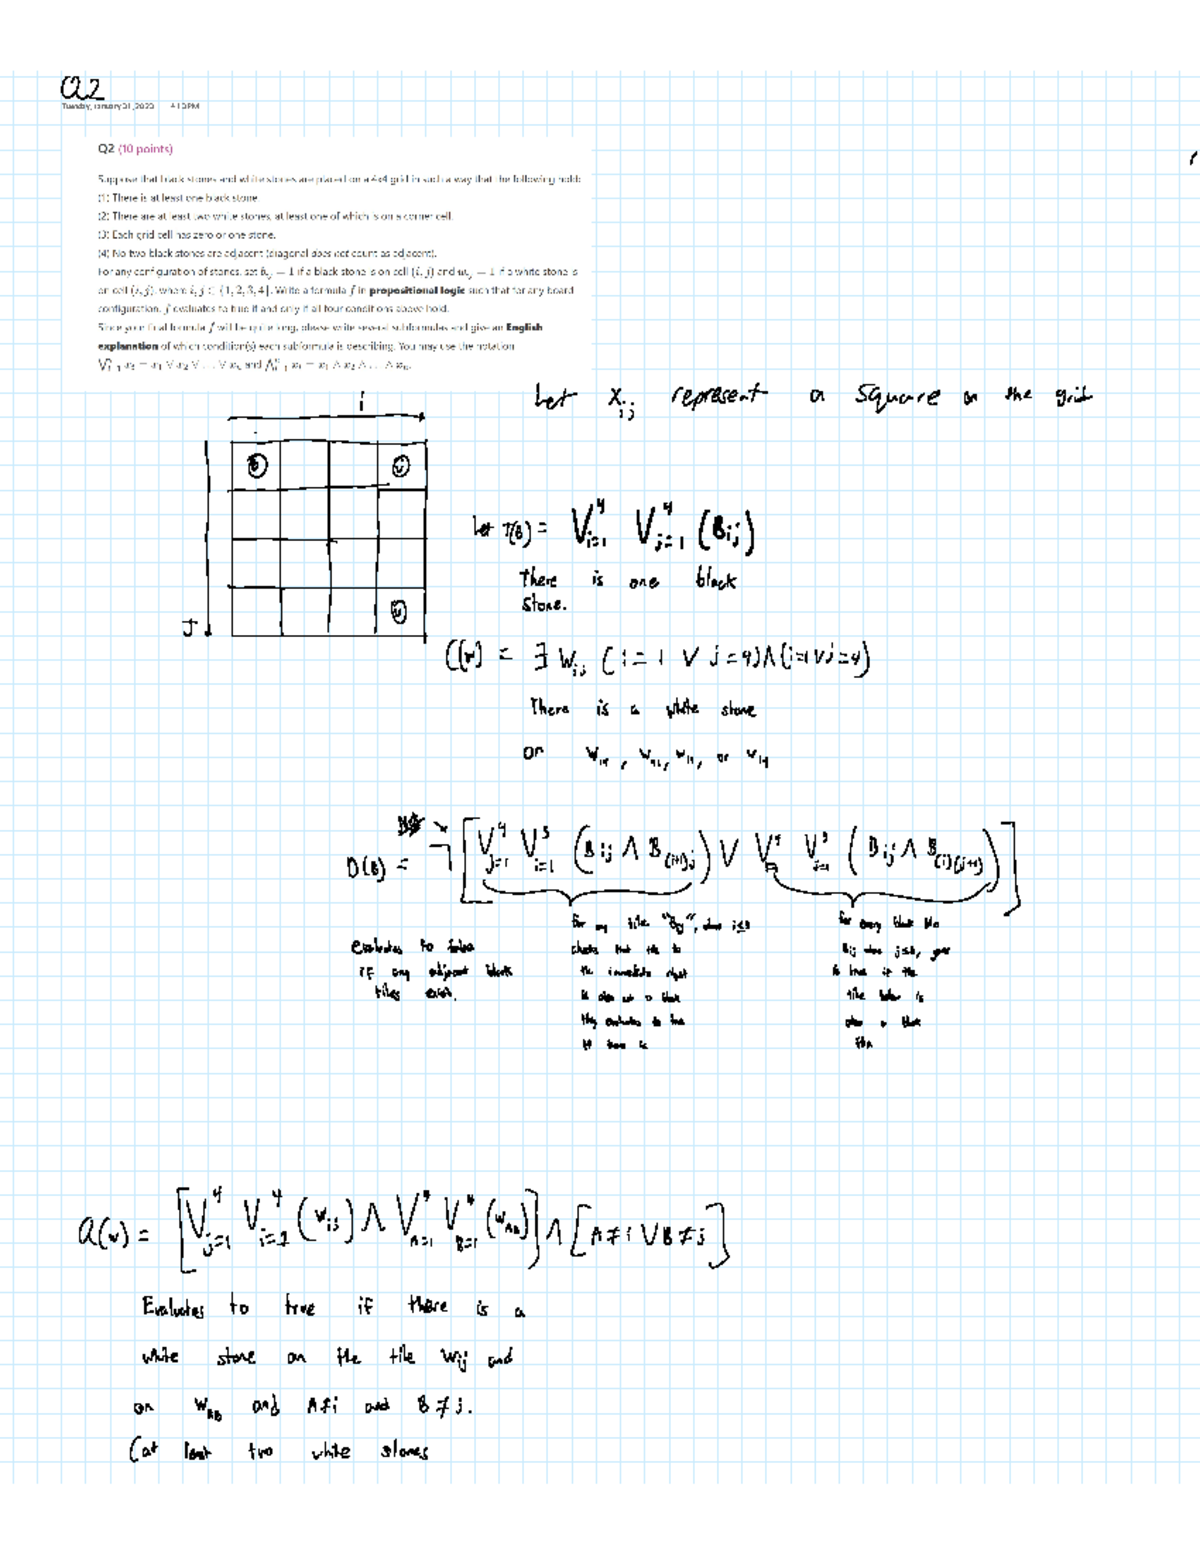 Q2
Tuesday, January 31, 2023 4:13 PM
Q2 (10 points)
Suppose that black stones and white stones are placed on a 4x4 grid in such a way that the following hold:
(1) There is at least one black stone.
(2) There are at least two white stones, at least one of which is on a corner cell.
(3) Each grid cell has zero or one stone.
(4) No two black stones are adjacent (diagonal does not count as adjacent).
For any configuration of stones, set b_ij = 1 if a black stone is on cell (i, j) and w_ij = 1 if a white stone is
on cell (i, j), where i, j ∈ {1, 2, 3, 4}. Write a formula f in propositional logic such that for any board
configuration, f evaluates to true if and only if all four conditions above hold.
Since your final formula f will be quite long, please write several subformulas and give an English
explanation of which condition(s) each subformula is describing. You may use the notation
i
Let X_ij represent a square on the grid
B
J
Let T(B) = V_{i=1}^4 V_{j=1}^4 (B_ij)
There is one black
stone.
C(w) = ∃ W_ij (i=1 ∨ j=4) ∧ (i=1 ∨ j=4)
There is a white stone
on
D(B) = ¬[V_{j=1}^4 V_{i=1}^3 (B_ij ∧ B_(i+1)j) ∨ V^4 V^3 (B_ij ∧ B_(i)(j+1))]
For any tile "B_ij", i≤3
For every black
evaluates to false
checks that tile to
B_ij j≤3,
if any adjacent black
the immediate right
is true if the
tiles exist.
is also a black
tile below is
evaluates to true
also a black
if there is
a(w) = [V_{j=1}^4 V_{i=1}^4 (W_ij) ∧ V_{A=1}^4 V_{B=1}^4 (W_AB)] ∧ [A≠i ∨ B≠j]
Evaluates to true if there is a
white stone on the tile W_ij and
on W_AB and A≠i and B≠j.
(at least two white stones